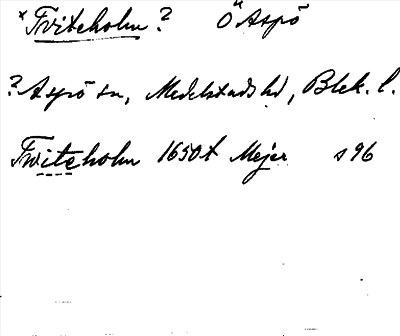 x Fviteholm ? Ö Aspö
? Aspö sn, Medelstads hd, Blek. l.
Fwiteholm 1650t Mejer s 96